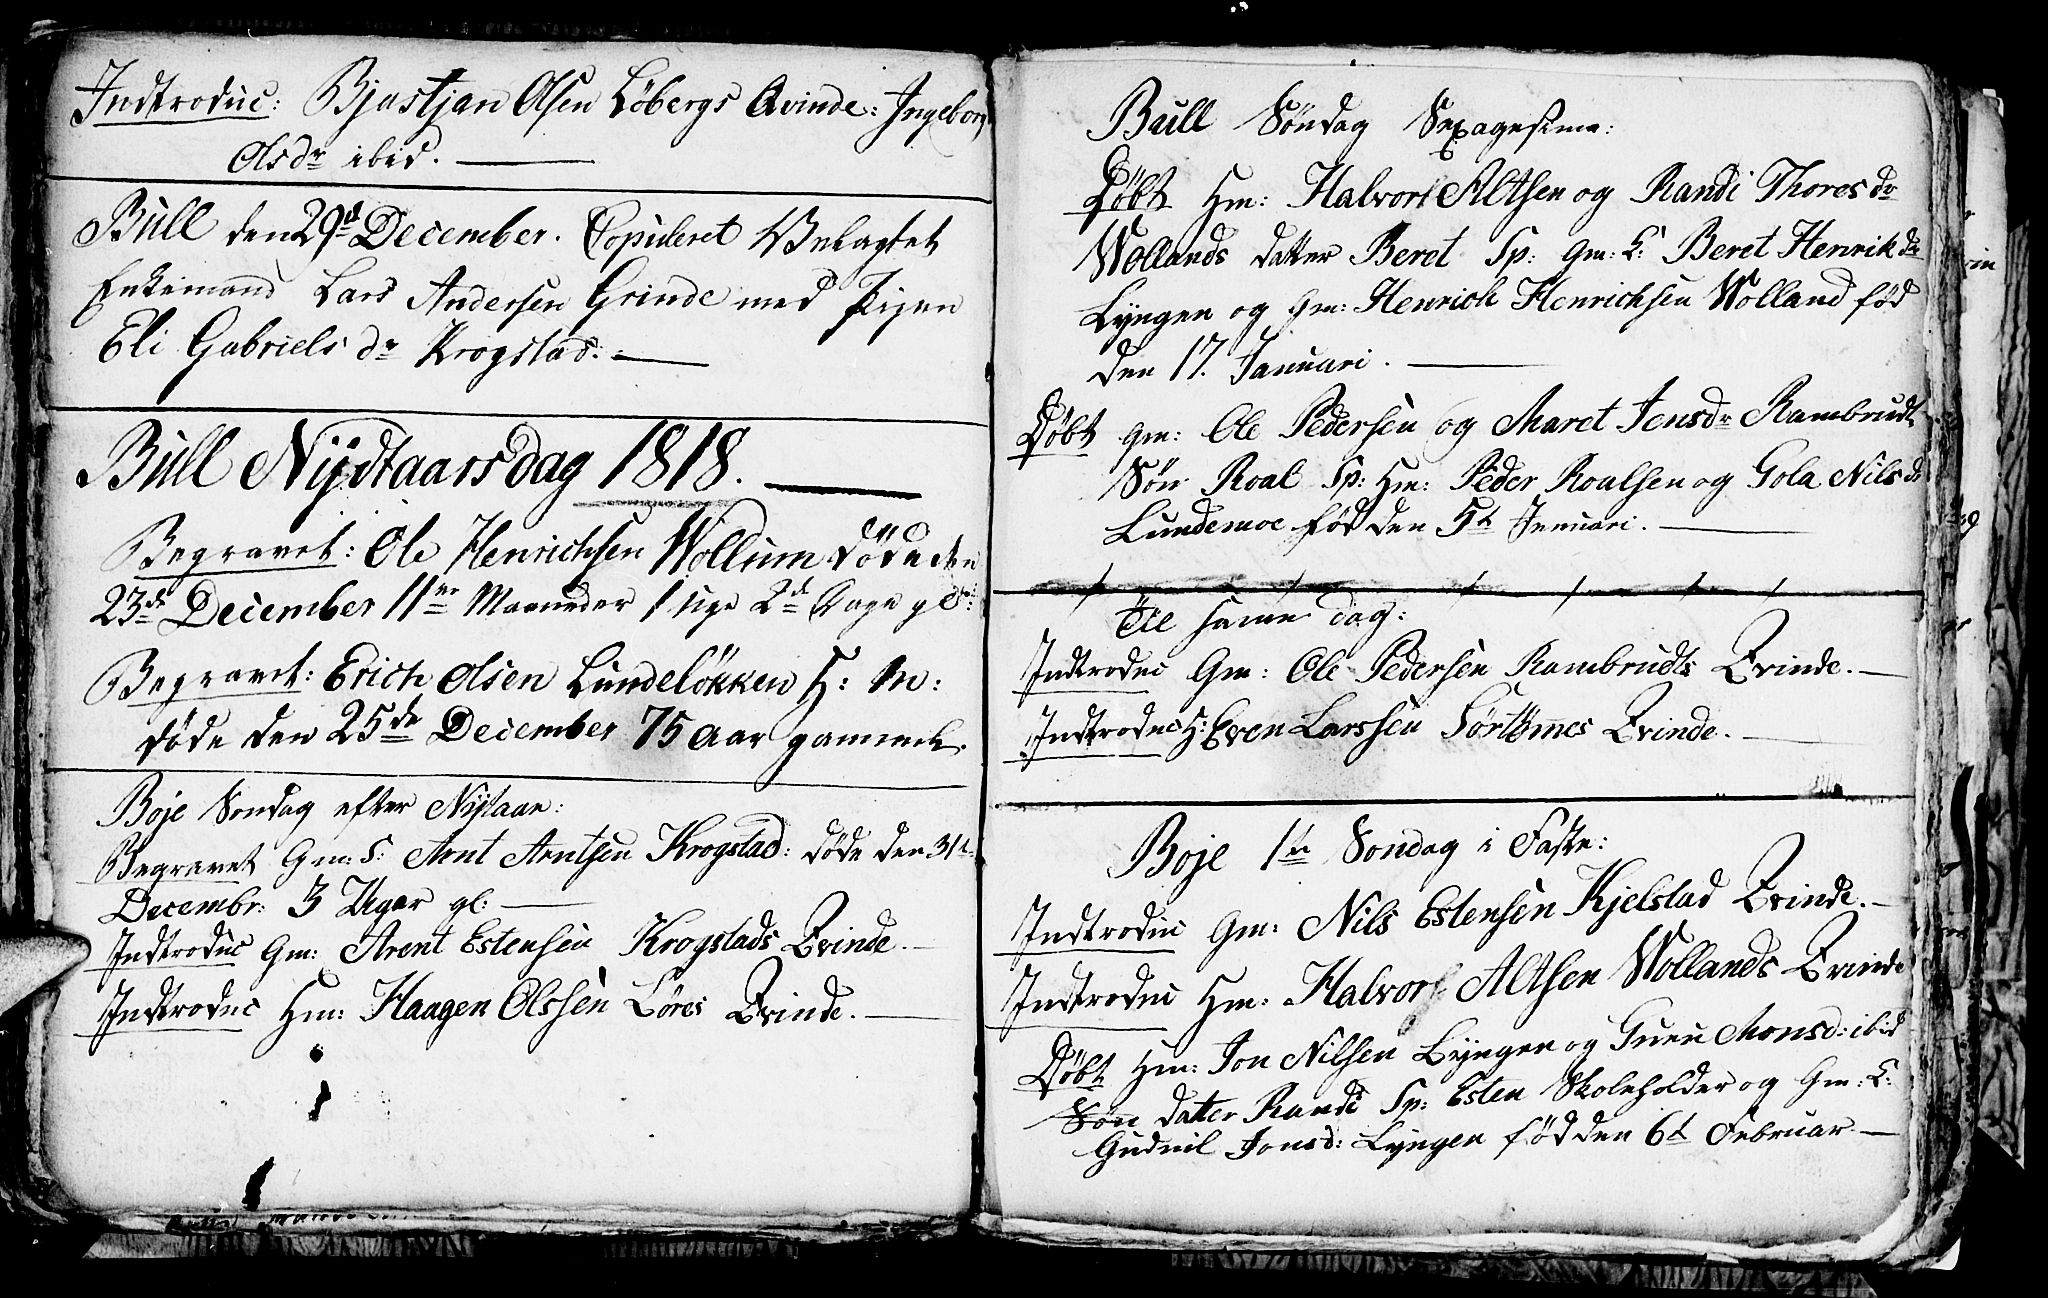 Indtroduc: Bjostjan Olsen Løbergs Qvinde: Ingeborg
Olsdr ibid.
Bull den 29d December. Copuleret Ubelagtet
Enkemand Lars Andersen Grinde med Pigen
Eli Gabrielsdr Krogstad.
Bull Nydtaarsdag 1818.
Begravet: Ole Henrichsen Wollum døde den
23de December 11ve Maaneder 1 uge 2d Dage gl:
Begravet: Erich Olsen Lundeløkken H: M:
døde den 25de December 75 aar gammel.
Boje Søndag efter Nytaar:
Begravet Gm: S: Arnt Arntsen Krogstad: døde den 31te
Decembr: 3 Uger gl:
Indtroduc Gm: Arent Estensen Krogstads Qvinde.
Indtroduc Hm: Haagen Olssen Løres Qvinde.
Bull Søndag Sexagesima:
Døbt Hm: Halvor Altsen og Randi Thoresdr
Wollands datter Beret Sp: Gm: K: Beret Henrikdr
Lyngen og Gm: Henrich Henrichsen Wolland fød
den 17. Januari.
Døbt Gm: Ole Pedersen og Maret Jensdr Rambrudt
Søn Roal Sp: Hm: Peder Roalsen og Gola Nilsd
Lundemoe fød den 5t Januari.
samme dag:
Indtroduc Gm: Ole Pedersen Rambrudts Qvinde.
Indtroduc H: Even Larssen Sørtømes Qvinde.
Boje 1te Søndag i Faste:
Indtroduc Gm: Nils Estensen Kjelstad Qvinde.
Indtroduc Hm: Halvor Altsen Wollands Qvinde
Døbt Hm: Jon Nilsen Lyngen og Guru Monsd: ibid
Søn datter Randi Sp: Esten Skoleholder og Gm: K:
Gudnil Jonsd: Lyngen fød den 6t Februar